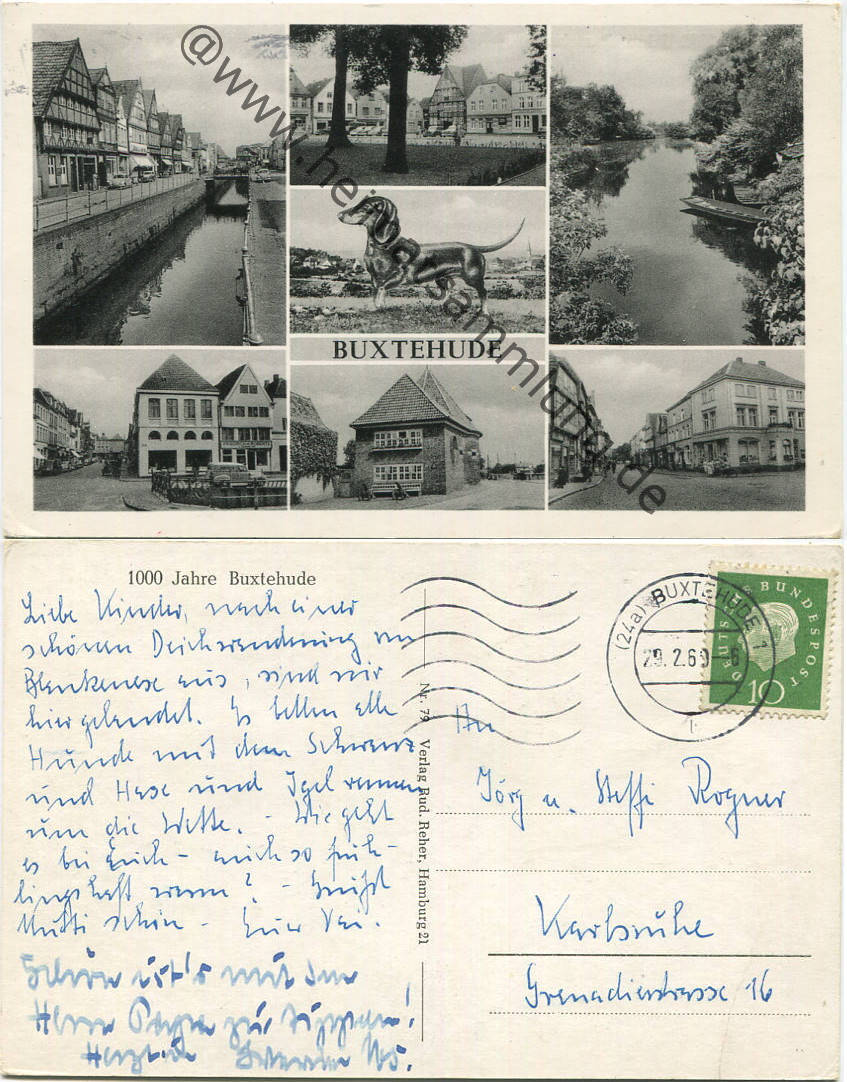 @www.heimatsammlung.de
BUXTEHUDE
1000 Jahre Buxtehude
Liebe Kinder, nach einer
schönen Deichwanderung von
Blankenese aus, sind wir
hier gelandet. Es bellen alle
Hunde mit dem Schwanz
und Hase und Igel rennen
um die Wette. - Wie geht
es bei Euch - auch so früh-
lingshaft warm? - Grüßt
Mutti schön - Euer
Schön ist's mit dem
Herrn Papa zu
Nr. 79 Verlag Rud. Reher, Hamburg 21
(24a) BUXTEHUDE
29. 2. 60
DEUTSCHE BUNDESPOST
10
An
Jörg u. Steffi Rogner
Karlsruhe
Grenadierstrasse 16